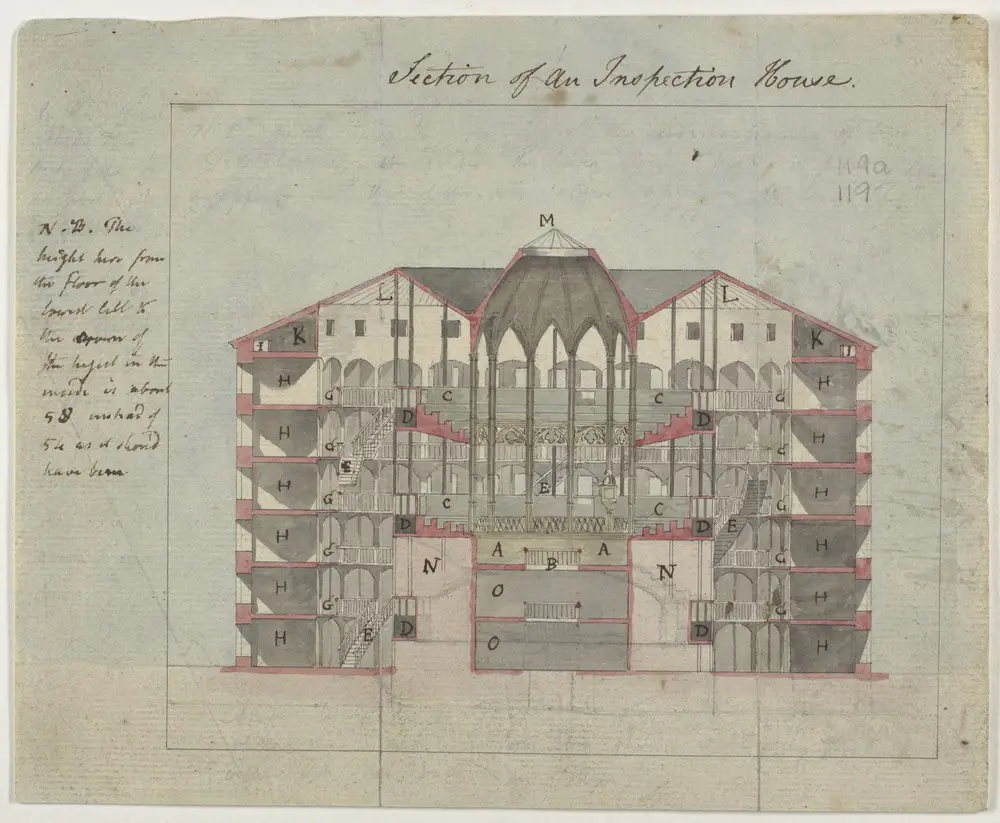 Section of an Inspection House.
119a
119
N.B. The
height here from
the Floor of the
lowest Cell to
the crown of
the in the
inside is about
58 instead of
54 as it should
have been.
M
L L
K K
H H
G C C G
D D
H H
G G
E E
H H
G C C G
D D E
H A A H
G N B N G
H O H
G G
D E D
H O H